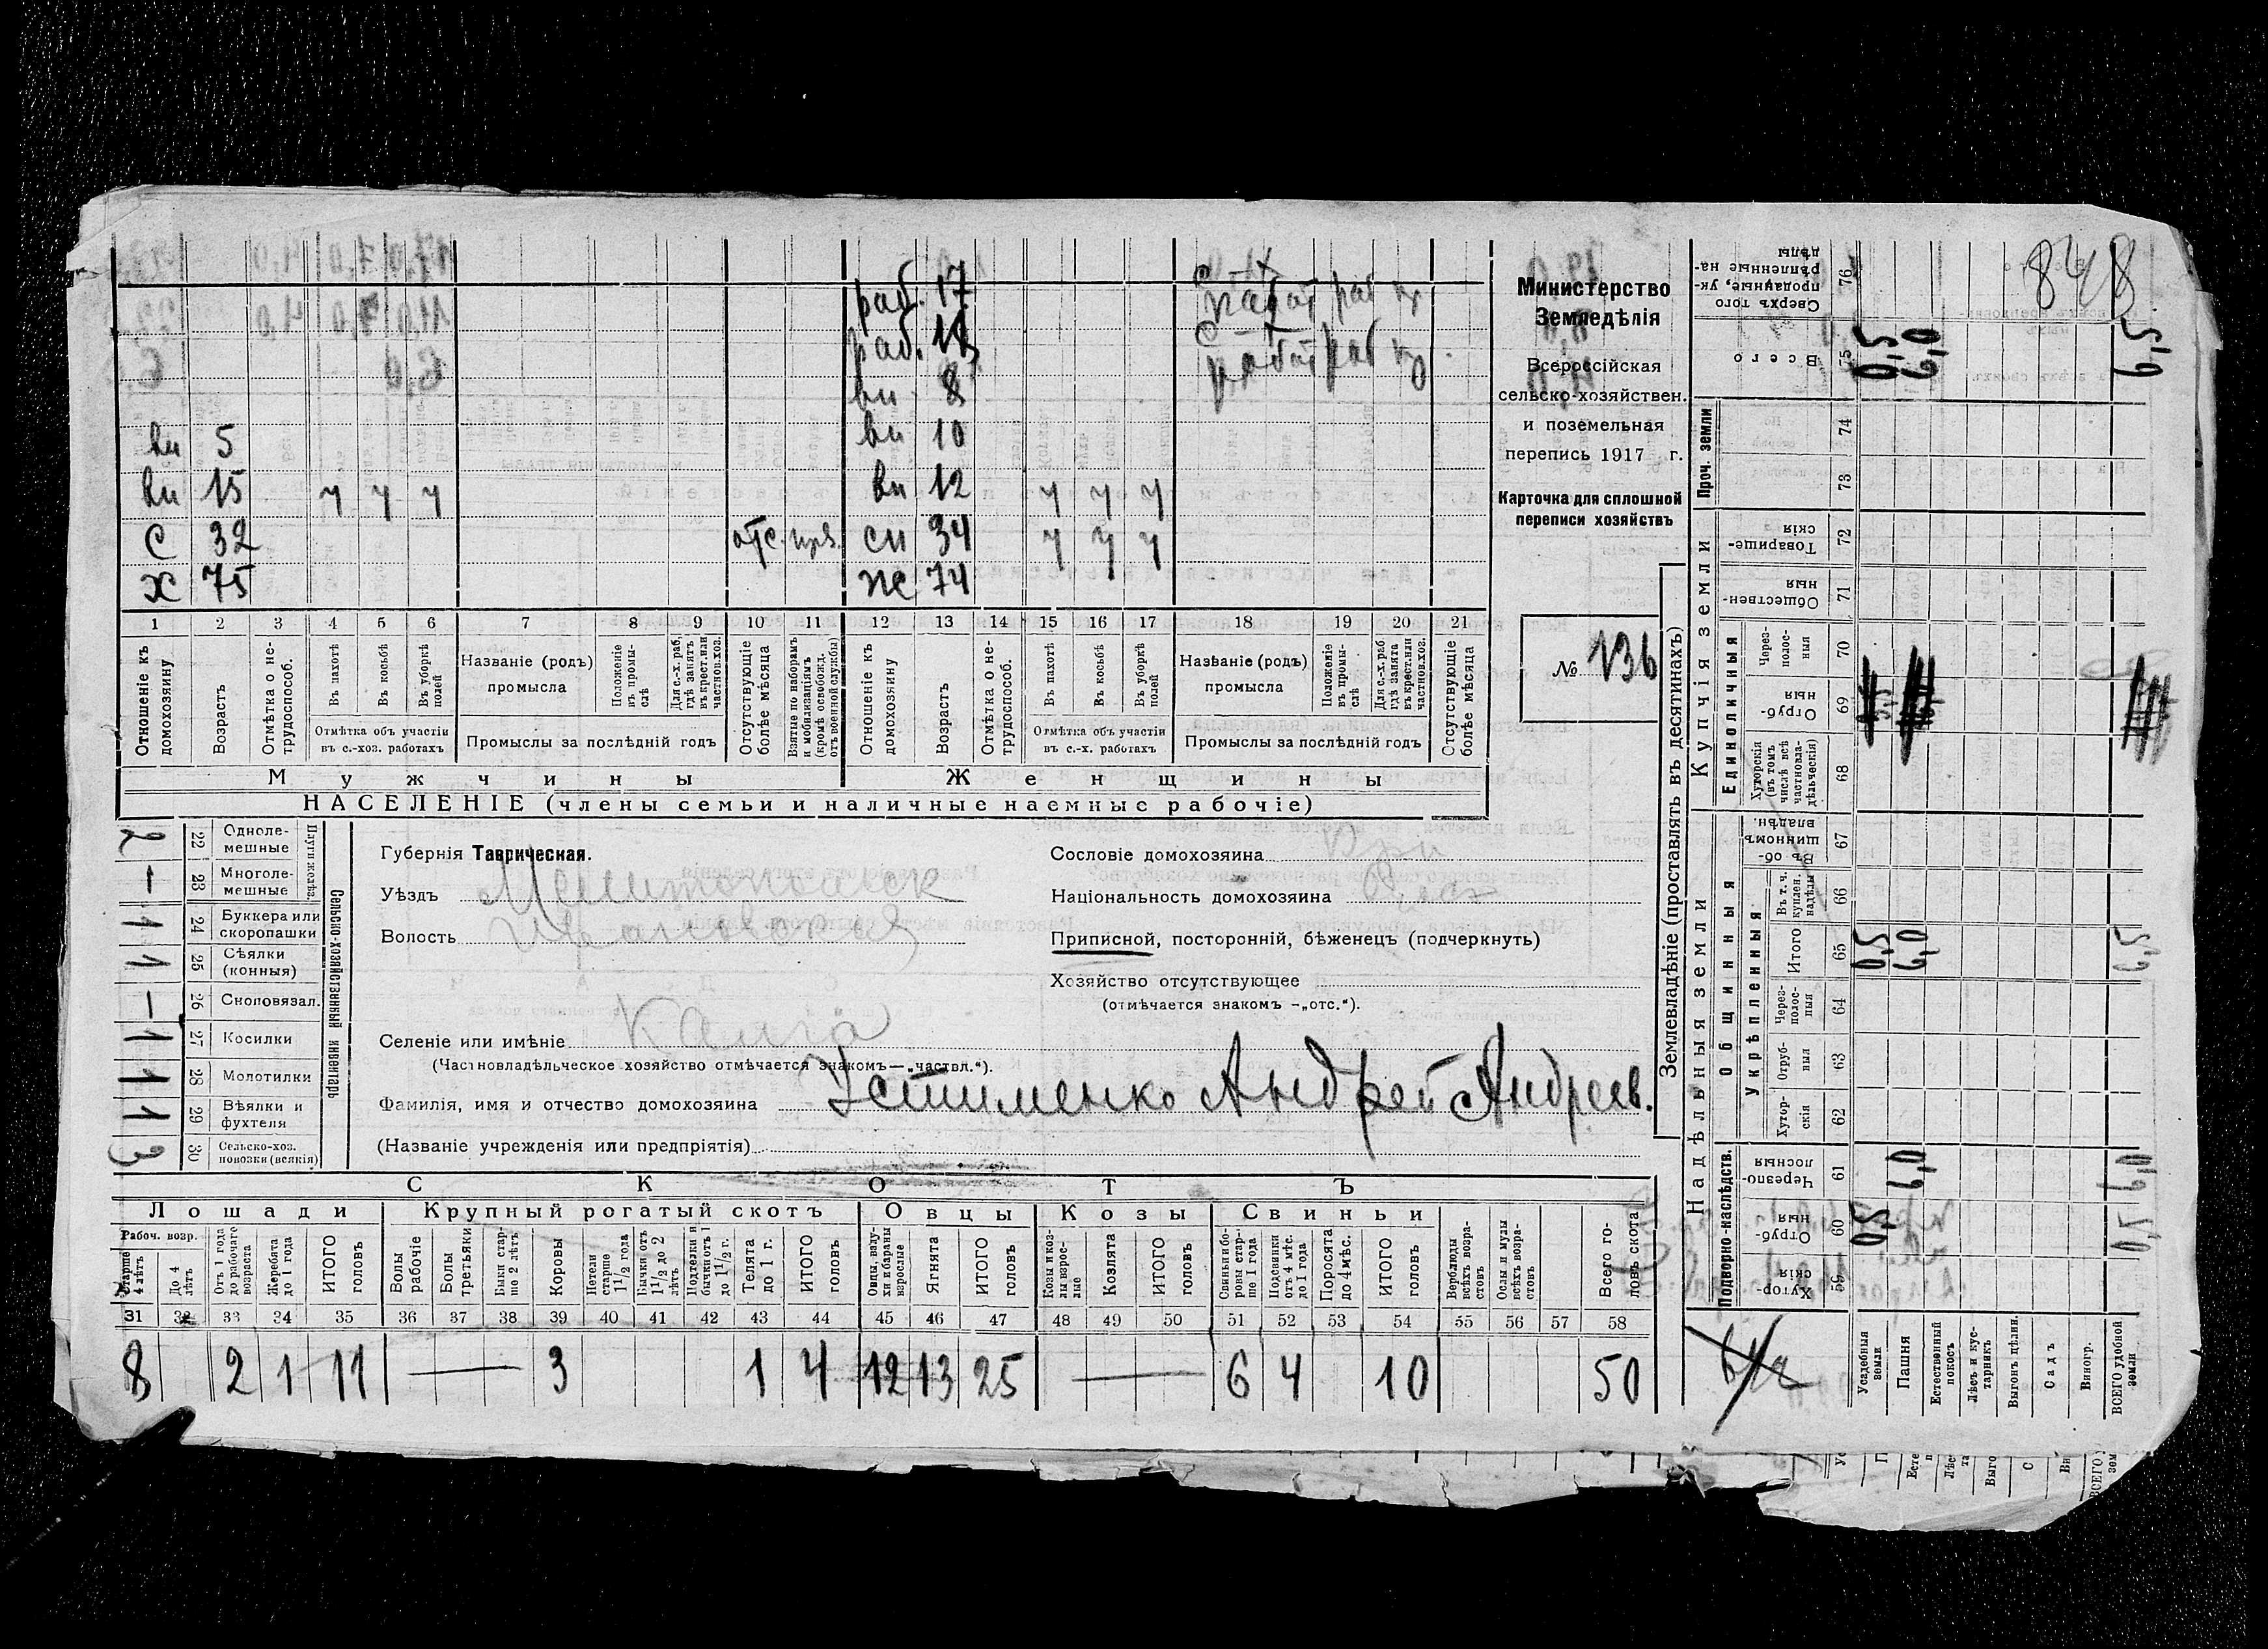 раб. 17
раб. 18
вн 8
вн 5 вн 10
вн 15 ч ч ч вн 12 ч ч ч
С 32 отс. сн 34 ч ч ч
Х 75 же 74
1 2 3 4 5 6 7 8 9 10 11 12 13 14 15 16 17 18 19 20 21
Отношеніе къ домохозяину
Возрастъ
Отмѣтка о не-трудоспособ.
Въ пахотѣ
Въ косьбѣ
Въ уборкѣ полей
Отмѣтка объ участіи въ с.-хоз. работахъ
Названіе (родъ) промысла
Положеніе въ промы-слѣ
Для с.-х. раб, гдѣ занятъ въ крест. или частнов. хоз.
Промыслы за послѣдній годъ
Отсутствующіе болѣе мѣсяца
Взятые по наборамъ и мобилизаціямъ (кромѣ освобожд. отъ военной службы)
Отношеніе къ домохозяину
Возрастъ
Отмѣтка о не-трудоспособ.
Въ пахотѣ
Въ косьбѣ
Въ уборкѣ полей
Отмѣтка объ участіи въ с.-х. работахъ
Названіе (родъ) промысла
Положеніе въ промы-слѣ
Для с.-х. раб. гдѣ занята въ крест. или частнов. хоз.
Промыслы за послѣдній годъ
Отсутствующіе болѣе мѣсяца
Мужчины Женщины
НАСЕЛЕНІЕ (члены семьи и наличные наемные рабочіе)
Министерство
Земледѣлія
Всероссійская
сельско-хозяйствен.
и поземельная
перепись 1917 г.
Карточка для сплошной
переписи хозяйствъ
№ 136
Плуги желѣз.
22 Одноле-мешные 2
23 Многоле-мешные —
24 Буккера или скоропашки 1
25 Сѣялки (конныя) 1
26 Сноповязал. —
27 Косилки 1
28 Молотилки 1
29 Вѣялки и фухтеля 1
30 Сельско-хоз. повозки (всякія) 3
Сельско-хозяйственный инвентарь
Губернія Таврическая.
Уѣздъ Мелитопольск
Волость
Селеніе или имѣніе
(Частновладѣльческое хозяйство отмѣчается знакомъ—„частвл.“).
Фамилія, имя и отчество домохозяина Устименко Андрей Андреев.
(Названіе учрежденія или предпріятія)
Сословіе домохозяина
Національность домохозяина
Приписной, посторонній, бѣженецъ (подчеркнуть)
Хозяйство отсутствующее
(отмѣчается знакомъ -„отс.“).
СКОТЪ
Лошади Крупный рогатый скотъ Овцы Козы Свиньи
Рабоч. возр.
Старше 4 лѣтъ
До 4 лѣтъ
Отъ 1 года до рабочаго возраста
Жеребята до 1 года
ИТОГО головъ
Волы рабочіе
Волы третьяки
Быки стар-ше 2 лѣтъ
Коровы
Нетели старше 1 1/2 года
Бычки отъ 1 1/2 до 2 лѣтъ
Подтелки и бычки отъ 1 до 1 1/2 г.
Телята до 1 г.
ИТОГО головъ
Овцы, валу-хи и бараны взрослые
Ягнята
ИТОГО головъ
Козы и коз-лы взрос-лые
Козлята
ИТОГО головъ
Свиньи и бо-ровы стар-ше 1 года
Подсвинки отъ 4 мѣс. до 1 года
Поросята до 4 мѣс.
ИТОГО головъ
Верблюды всѣхъ возра-стовъ
Ослы и мулы всѣхъ возра-стовъ
Всего го-ловъ скота
31 32 33 34 35 36 37 38 39 40 41 42 43 44 45 46 47 48 49 50 51 52 53 54 55 56 57 58
8 2 1 11 — 3 1 4 12 13 25 — 6 4 10 50
Землевладѣніе (проставлять въ десятинахъ)
Надѣльныя земли Купчія земли Проч. земли
Подворно-наслѣдств. Общинныя Единоличныя
Укрѣпленныя
59 Хутор-скія
60 Отруб-ныя
61 Черезпо-лосныя
62 Хутор-скія
63 Отруб-ныя
64 Через-полос-ныя
65 Итого
66 Въ т. ч. куплен. надѣлы
67 Въ об-щинномъ владѣн.
68 Хуторскія (въ томъ числѣ всѣ частновла-дѣльческія)
69 Отруб-ныя
70 Через-полос-ныя
71 Обществен-ныя
72 Товарище-скія
73
74
75 Всего
76 Сверхъ того проданные, ук-рѣпленные на-дѣлы
848
Усадебныя земли 0,5 0,5 0,5
Пашня 6,0 6,0 6,0
Естественный покосъ
Лѣсъ и кус-тарникъ
Выгонъ цѣлин.
Садъ
Виногр.
ВСЕГО удобной земли 0,5 6,0 6,5 6,5